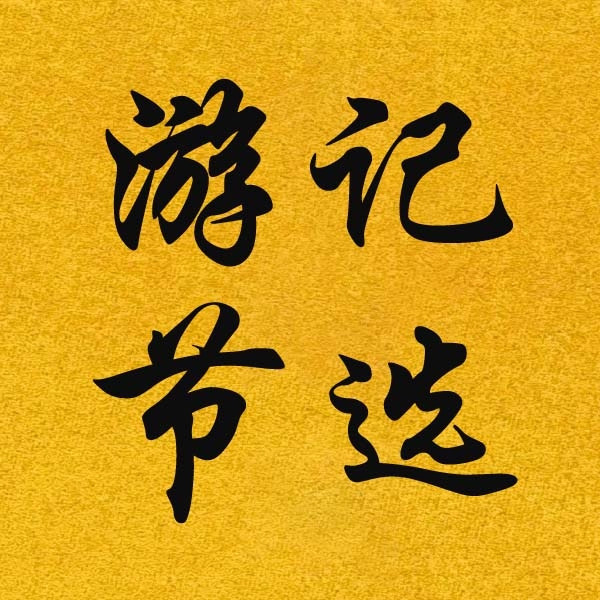 游记
节选